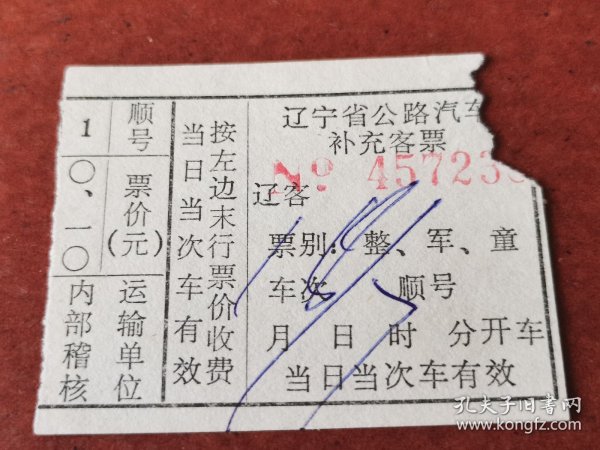 辽宁省公路汽车
补充客票
No 45723
辽客
票别：整、军、童
车次 顺号
月 日 时 分开车
当日当次车有效
按左边末行票价收费
当日当次车有效
顺号
票价(元)
运输单位
1
〇、一〇
内部稽核
孔夫子旧书网
www.kongfz.com